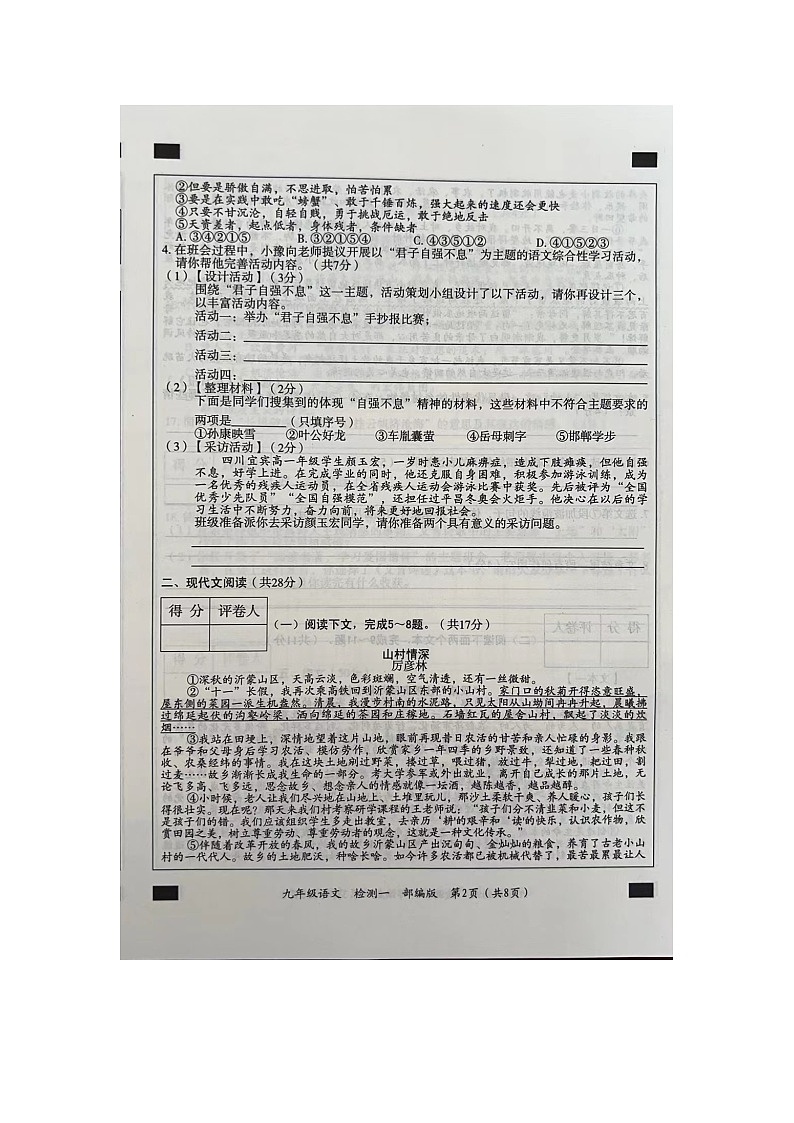 ②但要是骄傲自满，不思进取，怕苦怕累
③要是在实践中敢吃“螃蟹”、敢于千锤百炼，强大起来的速度还会更快
④只要不甘沉沦，自轻自贱，勇于挑战厄运，敢于绝地反击
⑤天资差者，起点低者，身体残者，条件缺者
A.③④②①⑤ B.③②①⑤④ C.④③⑤①② D.④①⑤②③
4.在班会过程中，小豫向老师提议开展以“君子自强不息”为主题的语文综合性学习活动，
请你帮他完善活动内容。（共7分）
（1）【设计活动】（3分）
围绕“君子自强不息”这一主题，活动策划小组设计了以下活动，请你再设计三个，
以丰富活动内容。
活动一：举办“君子自强不息”手抄报比赛；
活动二：
活动三：
活动四：
（2）【整理材料】（2分）
下面是同学们搜集到的体现“自强不息”精神的材料，这些材料中不符合主题要求的
两项是________（只填序号）
①孙康映雪 ②叶公好龙 ③车胤囊萤 ④岳母刺字 ⑤邯郸学步
（3）【采访活动】（2分）
四川宜宾高一年级学生颜玉宏，一岁时患小儿麻痹症，造成下肢瘫痪，但他自强
不息，好学上进。在完成学业的同时，他还克服自身困难，积极参加游泳训练，成为
一名优秀的残疾人运动员，在全省残疾人运动会游泳比赛中获奖。先后被评为“全国
优秀少先队员”“全国自强模范”，还担任过平昌冬奥会火炬手。他决心在以后的学
习生活中不断努力，奋力向前，将来更好地回报社会。
班级准备派你去采访颜玉宏同学，请你准备两个具有意义的采访问题。
二、现代文阅读（共28分）
得 分 评卷人
（一）阅读下文，完成5～8题。（共17分）
山村情深
厉彦林
①深秋的沂蒙山区，天高云淡，色彩斑斓，空气清透，还有一丝微甜。
②“十一”长假，我再次乘高铁回到沂蒙山区东部的小山村。家门口的秋菊开得恣意旺盛，
屋东侧的菜园一派生机盎然。清晨，我漫步村南的水泥路，只见太阳从山坳间冉冉升起，晨曦拂
过绵延起伏的沟壑岭梁，洒向绵延的茶园和庄稼地。石墙红瓦的屋舍山村，飘起了淡淡的炊
烟……
③我站在田埂上，深情地望着这片山地，眼前再现昔日农活的甘苦和亲人忙碌的身影。我跟
在爷爷和父母身后学习农活、模仿劳作，欣赏家乡一年四季的乡野景致，还知道了一些春种秋
收、农桑经纬的事情。我在这块土地刷过野菜，搂过草，喂过猪，放过牛，犁过地，把过田，割
过麦……故乡渐渐长成我生命的一部分。考大学参军或外出就业，离开自己成长的那片土地，无
论飞多高、飞多远，思念故乡、想念亲人的情感就像一坛酒，越陈越香，越品越醇。
④小时候，老人让我们尽兴地在山地上、土堆里玩儿，那沙土柔软干爽、养人暖心，孩子们长
得很茁实。现在呢？那天来我们村考察研学课程的王老师说：“孩子们分不清韭菜和小麦，但这不
是孩子们的错。我们应该组织学生多走出教室，去亲历‘耕’的艰辛和‘读’的快乐，认识农作物，欣
赏田园之美，树立尊重劳动、尊重劳动者的观念，这就是一种文化传承。”
⑤伴随着改革开放的春风，我的故乡沂蒙山区产出沉甸甸、金灿灿的粮食，养育了古老小山
村的一代代人。故乡的土地肥沃，种啥长啥。如今许多农活都已被机械代替了，最苦最累最让人
九年级语文 检测一 部编版 第2页（共8页）